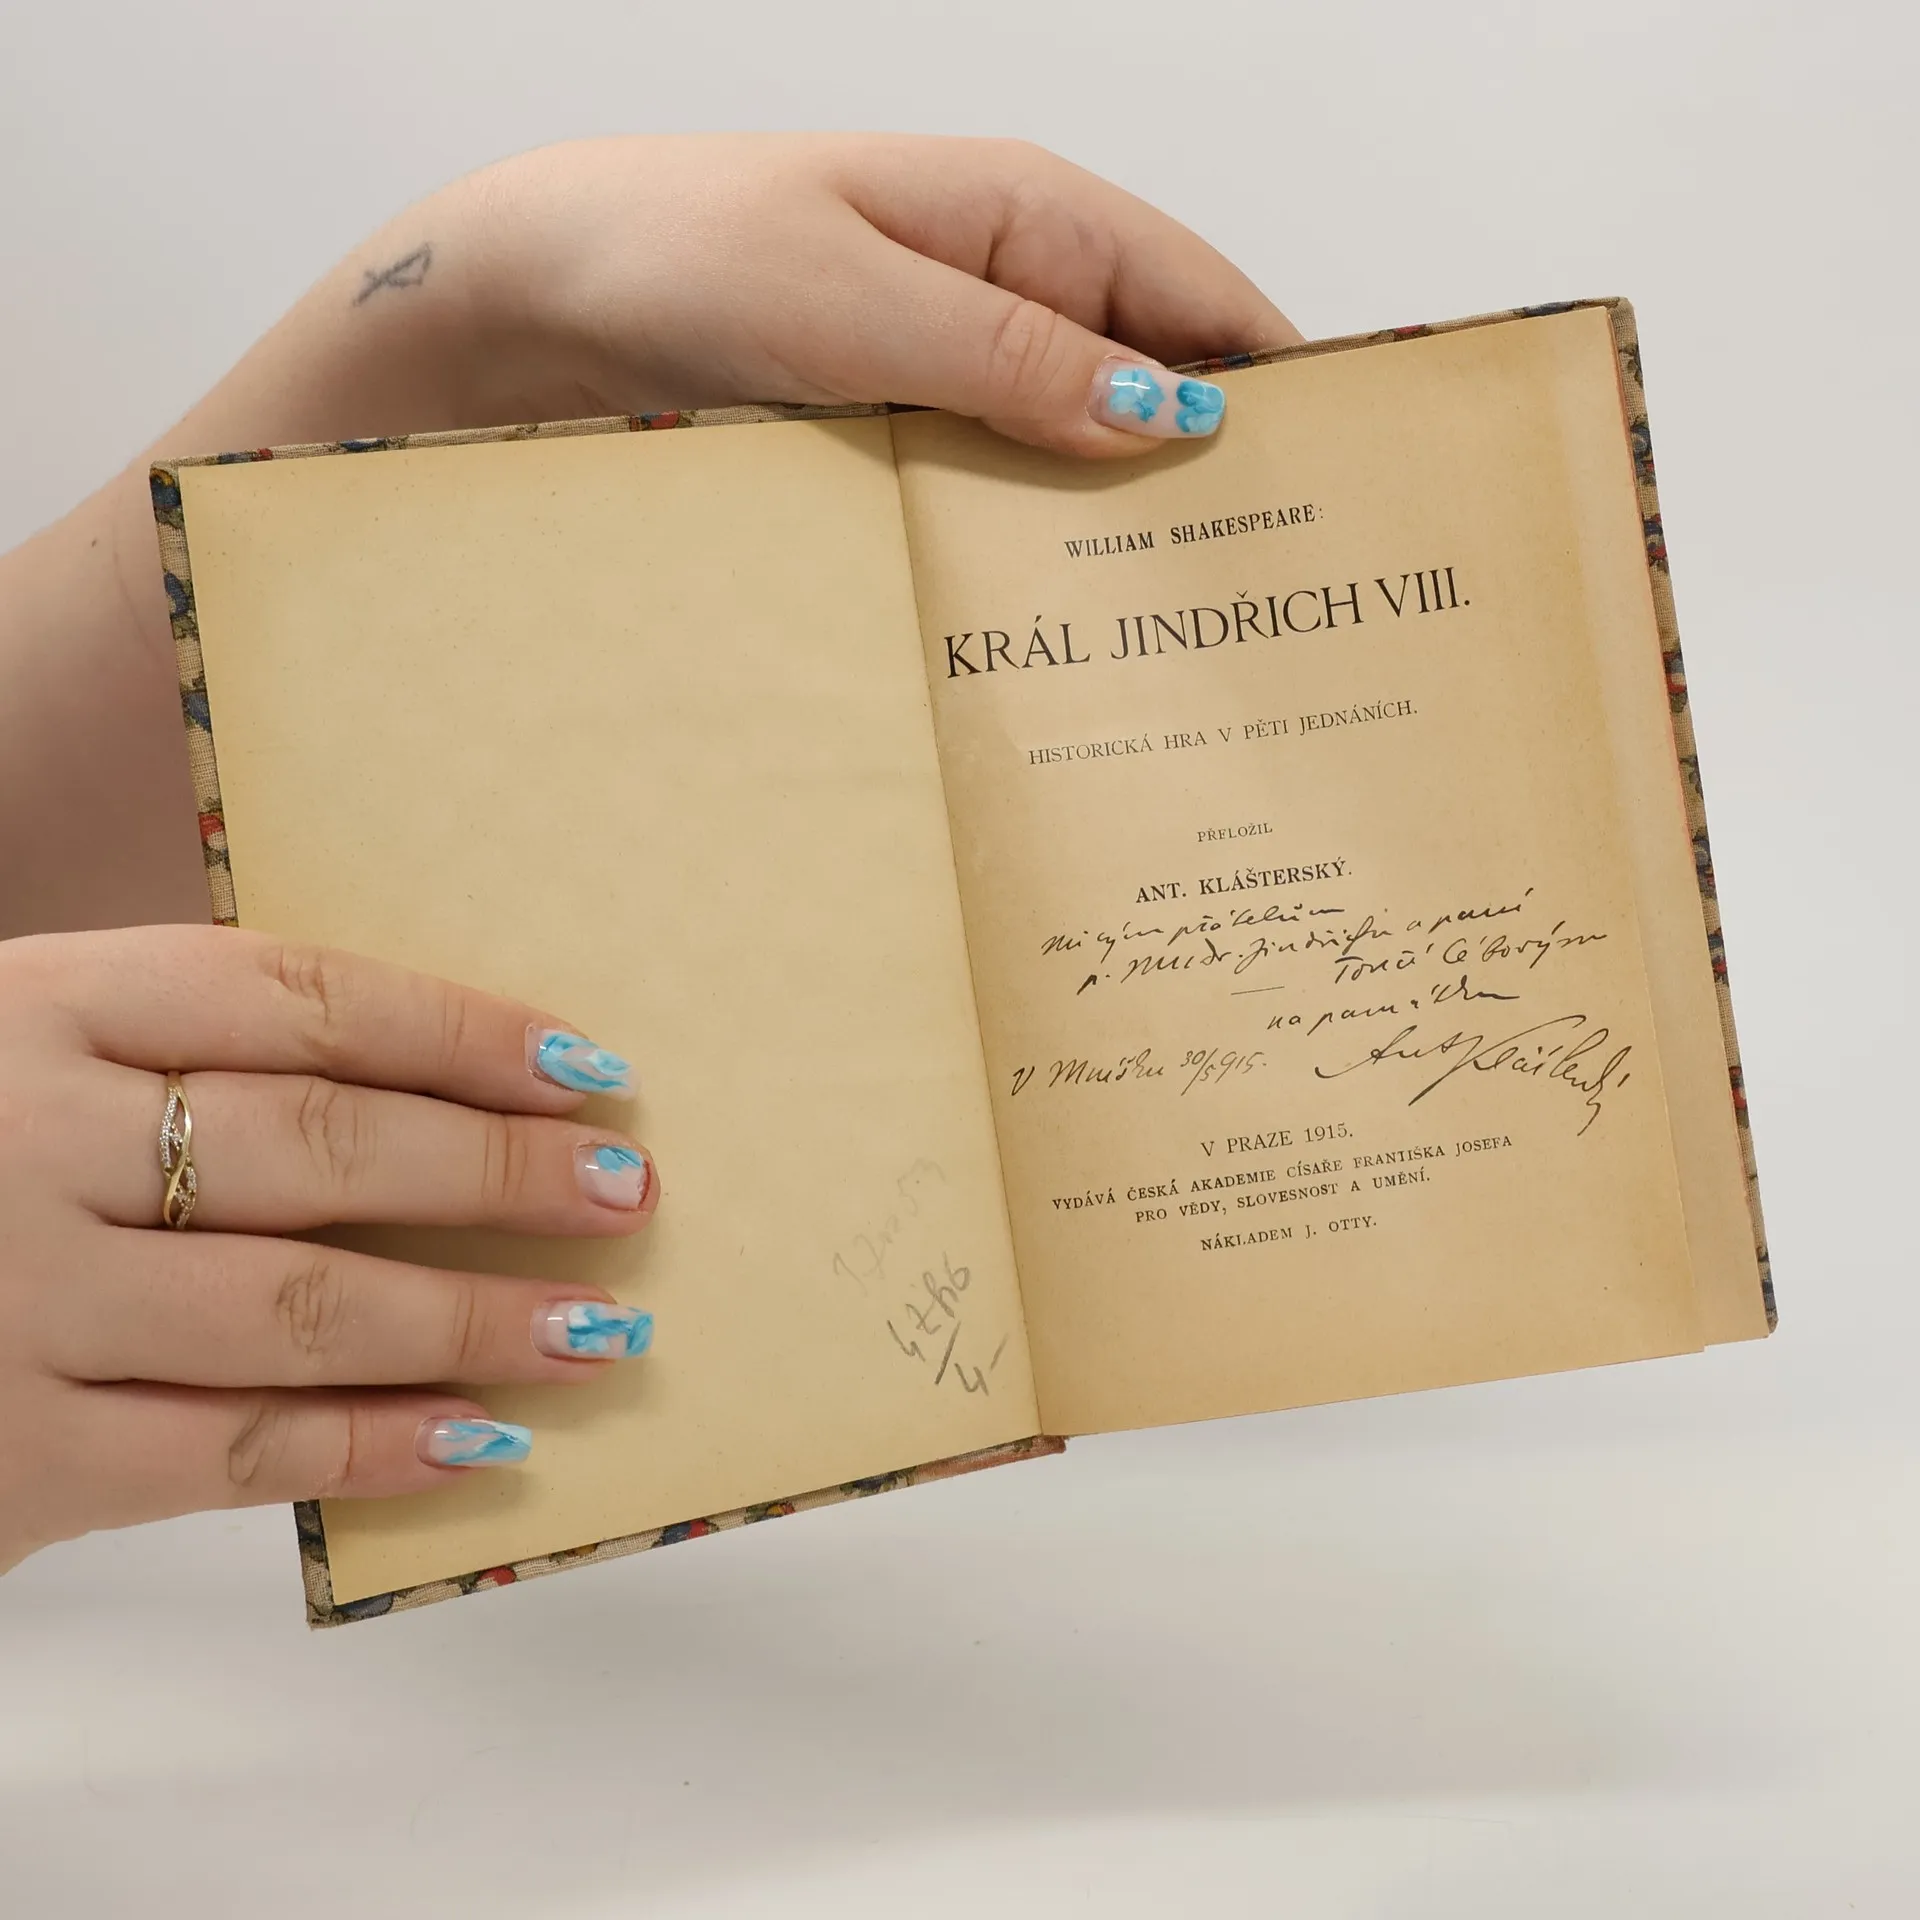 WILLIAM SHAKESPEARE:
KRÁL JINDŘICH VIII.
HISTORICKÁ HRA V PĚTI JEDNÁNÍCH.
PŘELOŽIL
ANT. KLÁŠTERSKÝ.
Milým přátelům
p. MUDr. Jindřichu a paní
na památku
V Mníšku 30/5 915.
Ant Klášterský
V PRAZE 1915.
VYDÁVÁ ČESKÁ AKADEMIE CÍSAŘE FRANTIŠKA JOSEFA
PRO VĚDY, SLOVESNOST A UMĚNÍ.
NÁKLADEM J. OTTY.